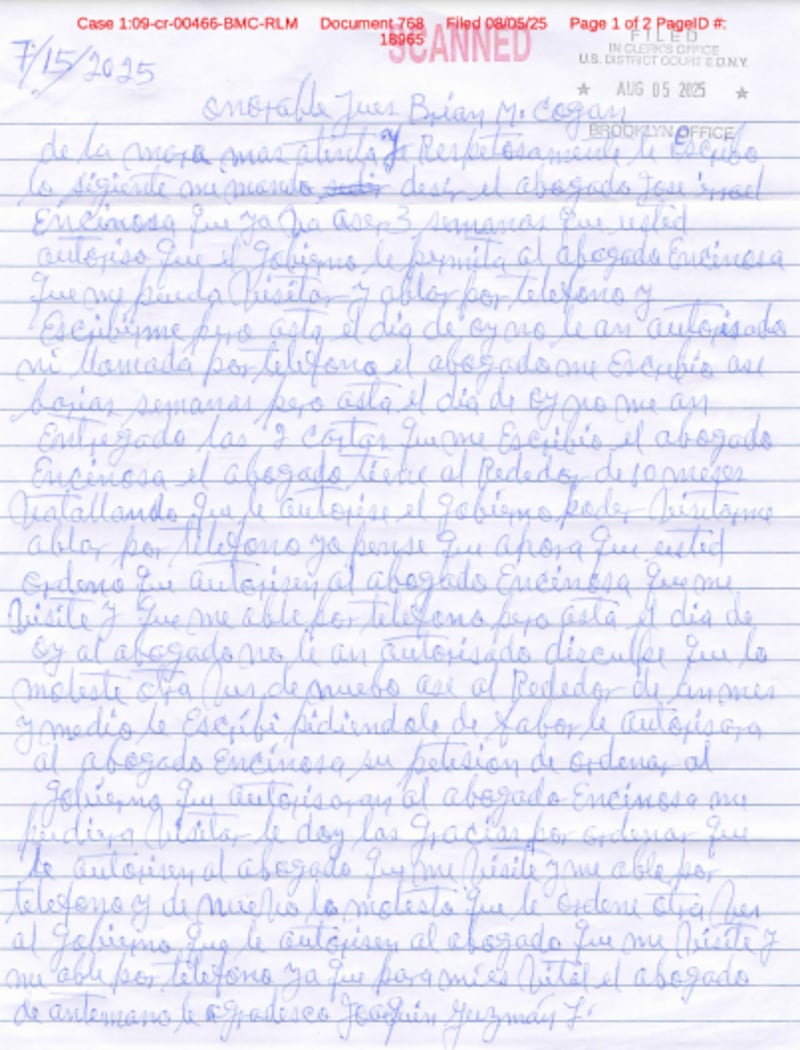 Case 1:09-cr-00466-BMC-RLM Document 768 Filed 08/05/25 Page 1 of 2 PageID #:
18965
SCANNED
FILED
IN CLERK'S OFFICE
U.S. DISTRICT COURT E.D.N.Y.
★ AUG 05 2025 ★
BROOKLYN OFFICE
7/15/2025
onorable Jues Brian M. Cogan
de la mas atenta y Respetosamente le Escribo
lo sigiente me mando desir el abogado Jose
Encinosa que ya ba aser 3 semanas que usted
autoriso que el gobierno le permita al abogado Encinosa
que me pueda Visitar y ablar por telefono y
Escribirme pero asta el dia de oy no le an autorisado
ni llamada por telefono el abogado me Escribio ase
barias semanas pero asta el dia de oy no me an
Entregado las 2 cartas que me Escribio el abogado
Encinosa el abogado tiene al Rededor de 10 meses
batallando que le autorise el gobierno poder Visitarme
ablar por telefono yo pense que ahora que usted
ordeno que autorisen al abogado Encinosa que me
Visite y que me able por telefono pero asta el dia de
oy al abogado no le an autorisado disculpe que lo
moleste otra Ves de nuebo ase al Rededor de un mes
y medio le Escribi pidiendole de fabor le autorisara
al abogado Encinosa su petision de ordenar al
gobierno que autorisaran al abogado Encinosa me
pudiera Visitar le doy las gracias por ordenar que
le autorisen al abogado que me Visite y me able por
telefono y de nuebo lo molesto que le ordene otra Ves
al gobierno que le autorisen al abogado que me Visite y
me able por telefono ya que para mi es Vital el abogado
de antemano le agradesco Joaquin Guzmán L.